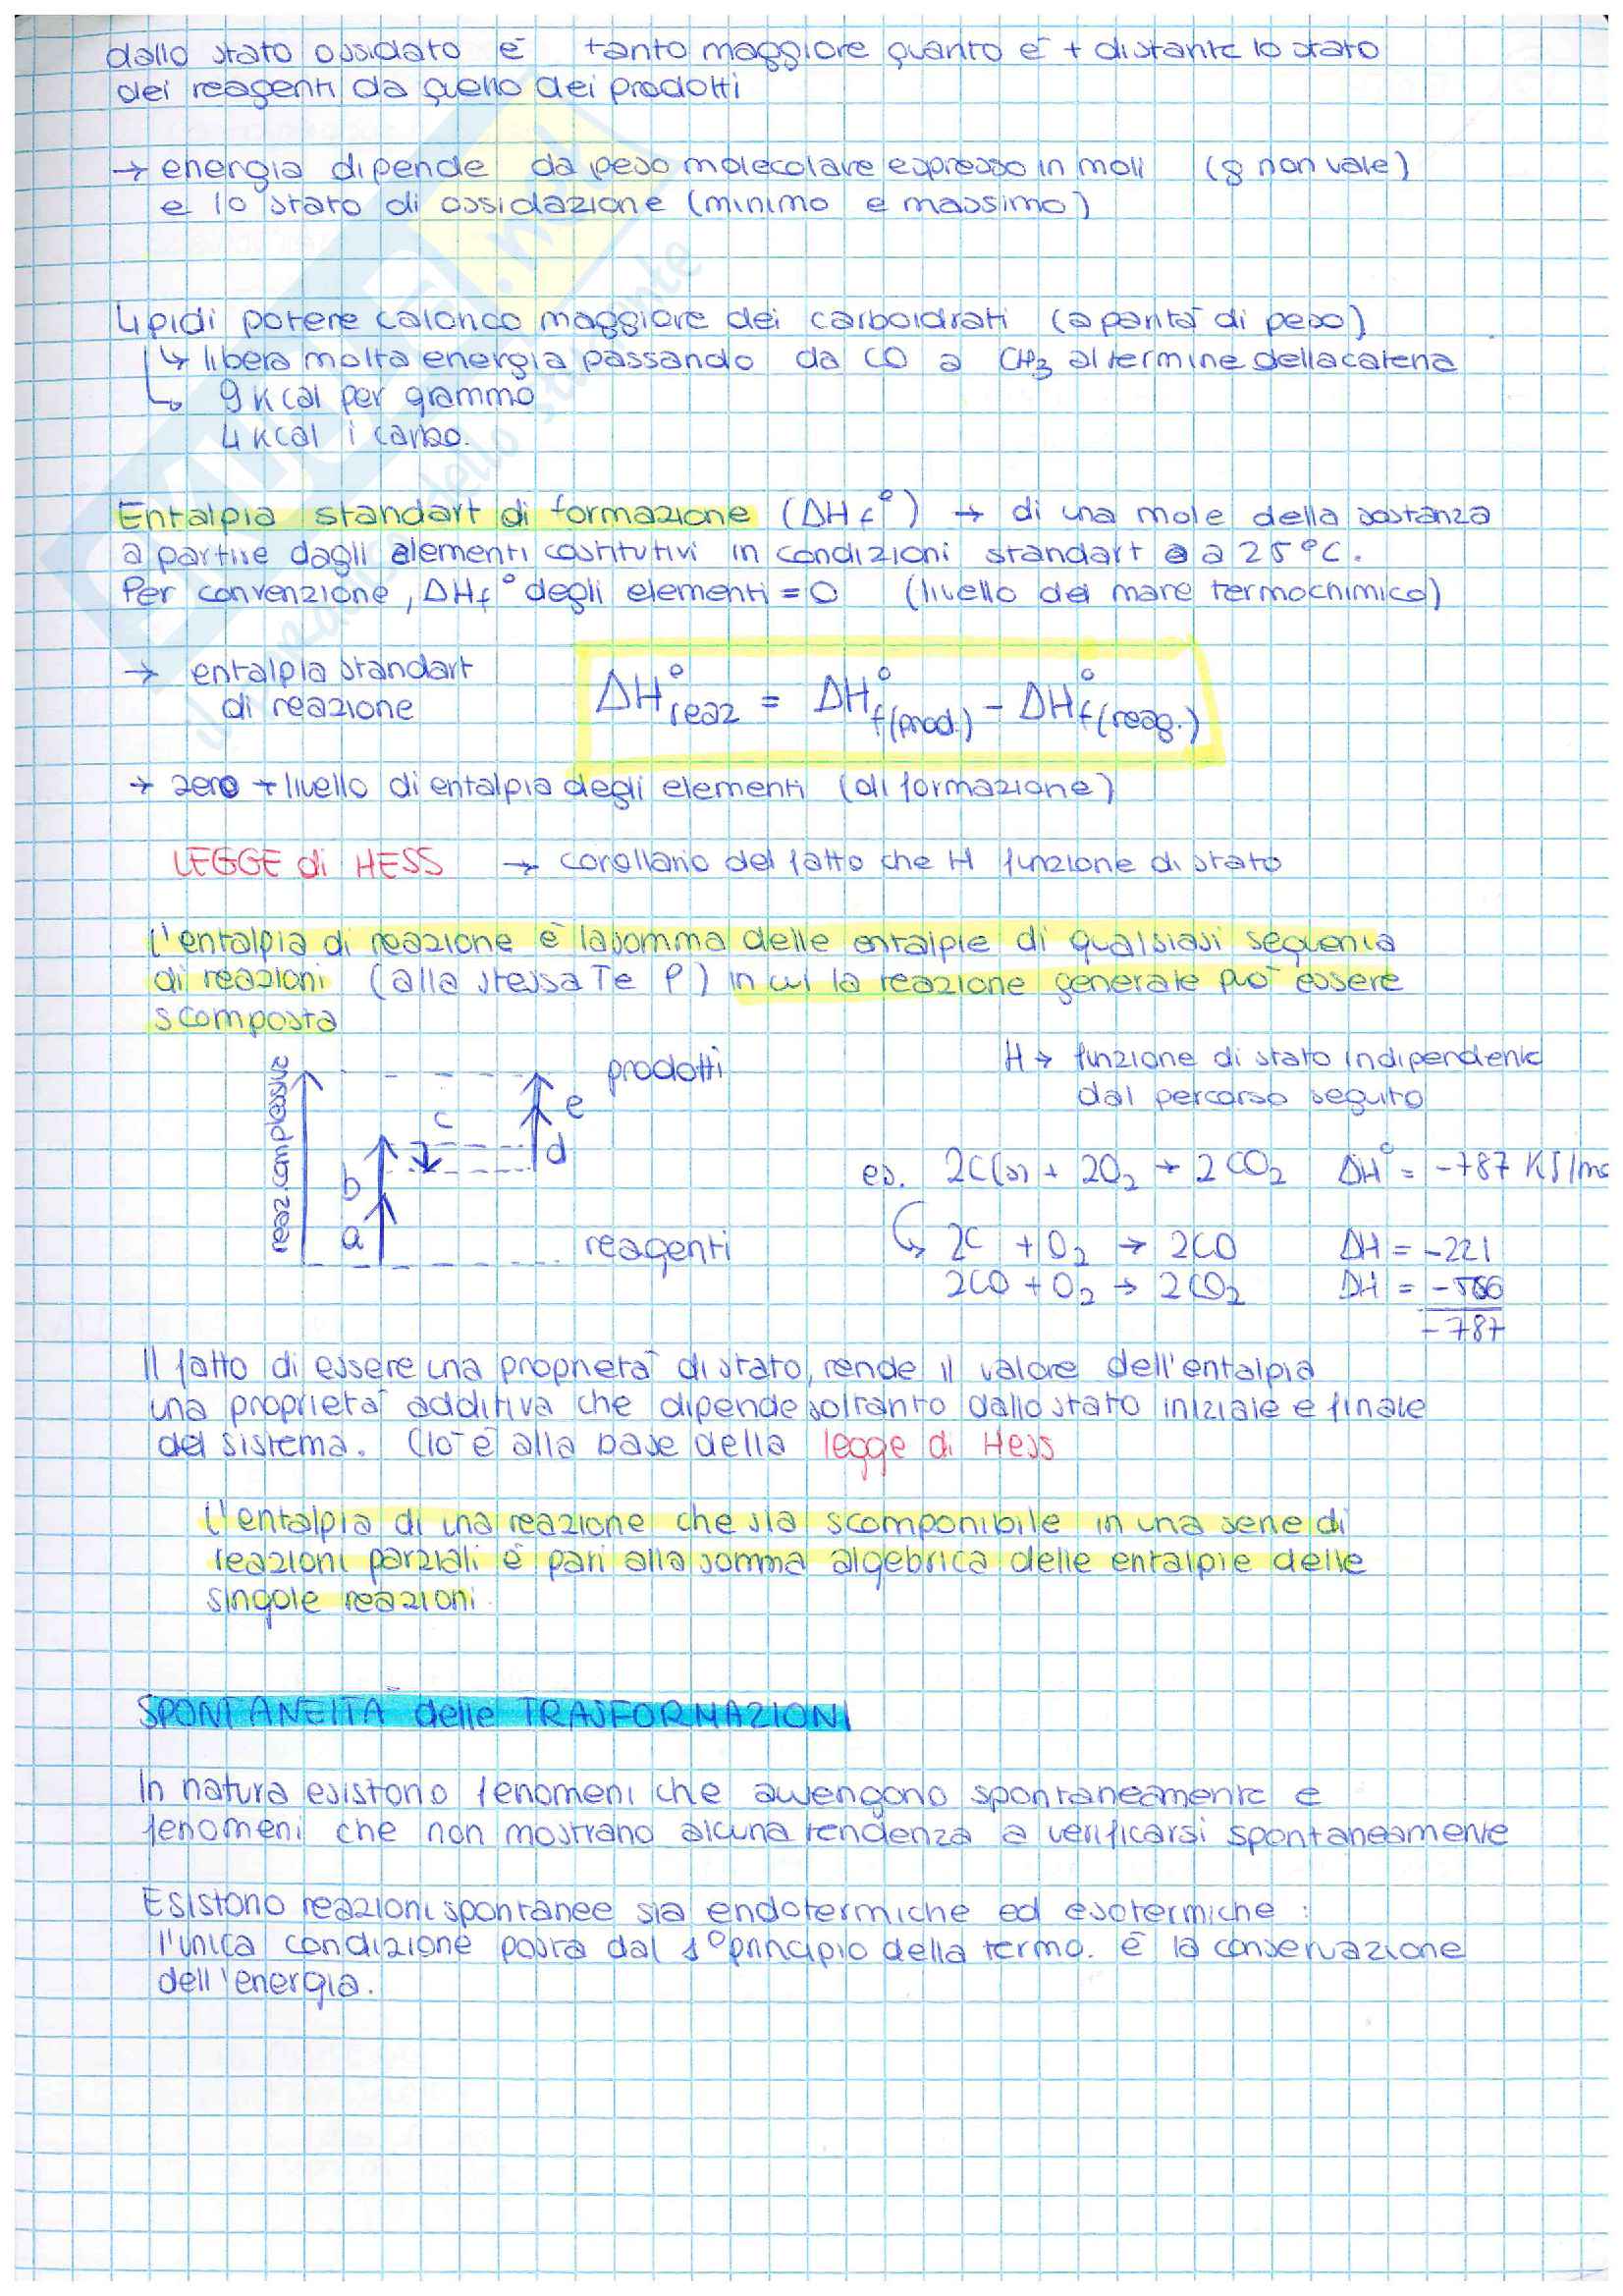 dallo stato ossidato è tanto maggiore quanto è + distante lo stato
dei reagenti da quello dei prodotti
→ energia dipende da peso molecolare espresso in moli (g non vale)
e lo stato di ossidazione (minimo e massimo)
Lipidi potere calorico maggiore dei carboidrati (a parità di peso)
↳ libera molta energia passando da CO a CH₃ al termine della catena
↳ 9 Kcal per grammo
4 Kcal i carbo.
Entalpia standart di formazione (ΔHf°) → di una mole della sostanza
a partire dagli elementi costitutivi in condizioni standart e a 25°C.
Per convenzione, ΔHf° degli elementi = 0 (livello del mare termochimico)
→ entalpia standart
di reazione
ΔH°reaz = ΔH°f(prod.) - ΔH°f(reag.)
→ zero → livello di entalpia degli elementi (di formazione)
LEGGE di HESS → corollario del fatto che H funzione di stato
L'entalpia di reazione è la somma delle entalpie di qualsiasi sequenza
di reazioni (alla stessa T e P) in cui la reazione generale può essere
scomposta
reaz. complessiva
prodotti
e
c
d
b
a
reagenti
H → funzione di stato indipendente
dal percorso seguito
es. 2C(s) + 2O₂ → 2CO₂ ΔH° = -787 KJ/mo
↳ 2C + O₂ → 2CO ΔH = -221
2CO + O₂ → 2CO₂ ΔH = -566
-787
Il fatto di essere una proprietà di stato, rende il valore dell'entalpia
una proprietà additiva che dipende soltanto dallo stato iniziale e finale
del sistema. Ciò è alla base della legge di Hess
L'entalpia di una reazione che sia scomponibile in una serie di
reazioni parziali è pari alla somma algebrica delle entalpie delle
singole reazioni
SPONTANEITÀ delle TRASFORMAZIONI
In natura esistono fenomeni che avvengono spontaneamente e
fenomeni che non mostrano alcuna tendenza a verificarsi spontaneamente
Esistono reazioni spontanee sia endotermiche ed esotermiche :
l'unica condizione posta dal 1° principio della termo. è la conservazione
dell'energia.